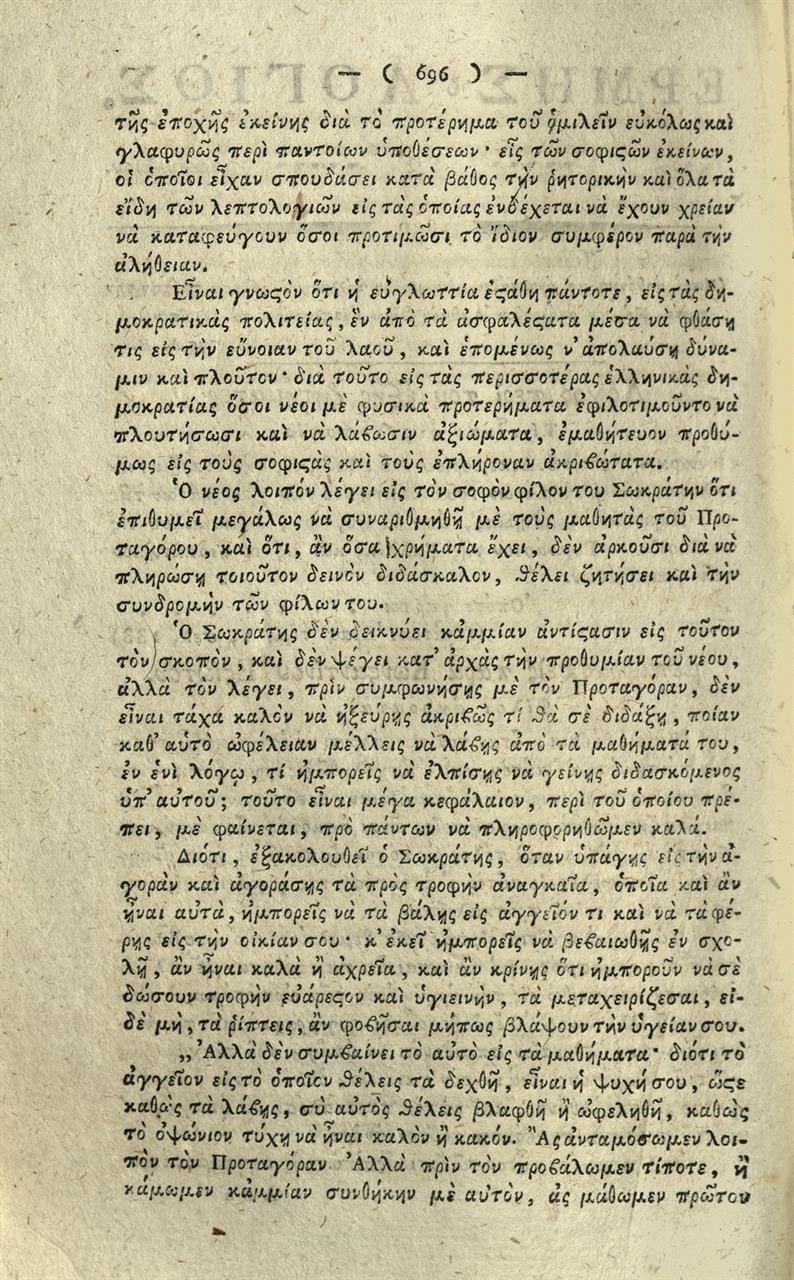 — ( 696 ) —
τῆς ἐποχῆς ἐκείνης διὰ τὸ προτέρημα τοῦ ὁμιλεῖν εὐκόλως καὶ
γλαφυρῶς περὶ παντοίων ὑποθέσεων· εἷς τῶν σοφιϛῶν ἐκείνων,
οἱ ὁποῖοι εἶχαν σπουδάσει κατὰ βάθος τὴν ῥητορικὴν καὶ ὅλα τὰ
εἴδη τῶν λεπτολογιῶν εἰς τὰς ὁποίας ἐνδέχεται νὰ ἔχουν χρείαν
νὰ καταφεύγουν ὅσοι προτιμῶσι τὸ ἴδιον συμφέρον παρὰ τὴν
ἀλήθειαν.
Εἶναι γνωϛὸν ὅτι ἡ εὐγλωττία ἐϛάθη πάντοτε, εἰς τὰς δη-
μοκρατικὰς πολιτείας, ἓν ἀπὸ τὰ ἀσφαλέϛατα μέσα νὰ φθάσῃ
τις εἰς τὴν εὔνοιαν τοῦ λαοῦ, καὶ ἑπομένως ν' ἀπολαύσῃ δύνα-
μιν καὶ πλοῦτον· διὰ τοῦτο εἰς τὰς περισσοτέρας ἑλληνικὰς δη-
μοκρατίας ὅσοι νέοι μὲ φυσικὰ προτερήματα ἐφιλοτιμοῦντο νὰ
πλουτήσωσι καὶ νὰ λάϐωσιν ἀξιώματα, ἐμαθήτευον προθύ-
μως εἰς τοὺς σοφιϛὰς καὶ τοὺς ἐπλήροναν ἀκριϐώτατα.
Ὁ νέος λοιπὸν λέγει εἰς τὸν σοφὸν φίλον του Σωκράτην ὅτι
ἐπιθυμεῖ μεγάλως νὰ συναριθμηθῇ μὲ τοὺς μαθητὰς τοῦ Πρω-
ταγόρου, καὶ ὅτι, ἂν ὅσα χρήματα ἔχει, δὲν ἀρκοῦσι διὰ νὰ
πληρώσῃ τοιοῦτον δεινὸν διδάσκαλον, θέλει ζητήσει καὶ τὴν
συνδρομὴν τῶν φίλων του.
Ὁ Σωκράτης δὲν δεικνύει κἀμμίαν ἀντίϛασιν εἰς τοῦτον
τὸν σκοπὸν, καὶ δὲν ψέγει κατ' ἀρχὰς τὴν προθυμίαν τοῦ νέου,
ἀλλὰ τὸν λέγει, πρὶν συμφωνήσῃς μὲ τὸν Προταγόραν, δὲν
εἶναι τάχα καλὸν νὰ ἠξεύρῃς ἀκριϐῶς τί θὰ σὲ διδάξῃ, ποίαν
καθ' αὑτὸ ὠφέλειαν μέλλεις νὰ λάϐῃς ἀπὸ τὰ μαθήματά του,
ἐν ἑνὶ λόγῳ, τί ἠμπορεῖς νὰ ἐλπίσῃς νὰ γείνῃς διδασκόμενος
ὑπ' αὐτοῦ; τοῦτο εἶναι μέγα κεφάλαιον, περὶ τοῦ ὁποίου πρέ-
πει, μὲ φαίνεται, πρὸ πάντων νὰ πληροφορηθῶμεν καλά.
Διότι, ἐξακολουθεῖ ὁ Σωκράτης, ὅταν ὑπάγῃς εἰς τὴν ἀ-
γορὰν καὶ ἀγοράσῃς τὰ πρὸς τροφὴν ἀναγκαῖα, ὁποῖα καὶ ἂν
ἦναι αὐτὰ, ἠμπορεῖς νὰ τὰ βάλῃς εἰς ἀγγεῖόν τι καὶ νὰ τὰ φέ-
ρῃς εἰς τὴν οἰκίαν σου· κ' ἐκεῖ ἠμπορεῖς νὰ βεϐαιωθῇς ἐν σχο-
λῇ, ἂν ἦναι καλὰ ἢ ἀχρεῖα, καὶ ἂν κρίνῃς ὅτι ἠμποροῦν νὰ σὲ
δώσουν τροφὴν εὐάρεϛον καὶ ὑγιεινὴν, τὰ μεταχειρίζεσαι, εἰ-
δὲ μὴ, τὰ ῥίπτεις, ἂν φοϐῆσαι μήπως βλάψουν τὴν ὑγείαν σου.
„ Ἀλλὰ δὲν συμϐαίνει τὸ αὐτὸ εἰς τὰ μαθήματα· διότι τὸ
ἀγγεῖον εἰς τὸ ὁποῖον θέλεις τὰ δεχθῇ, εἶναι ἡ ψυχή σου, ὥϛε
καθὼς τὰ λάϐῃς, σὺ αὐτὸς θέλεις βλαφθῆ ἢ ὠφεληθῆ, καθὼς
τὸ ὀψώνιον τύχῃ νὰ ἦναι καλὸν ἢ κακόν. Ἂς ἀνταμόσωμεν λοι-
πὸν τὸν Προταγόραν. Ἀλλὰ πρὶν τὸν προϐάλωμεν τίποτε, ἢ
κάμωμεν κἀμμίαν συνθήκην μὲ αὐτὸν, ἂς μάθωμεν πρῶτον